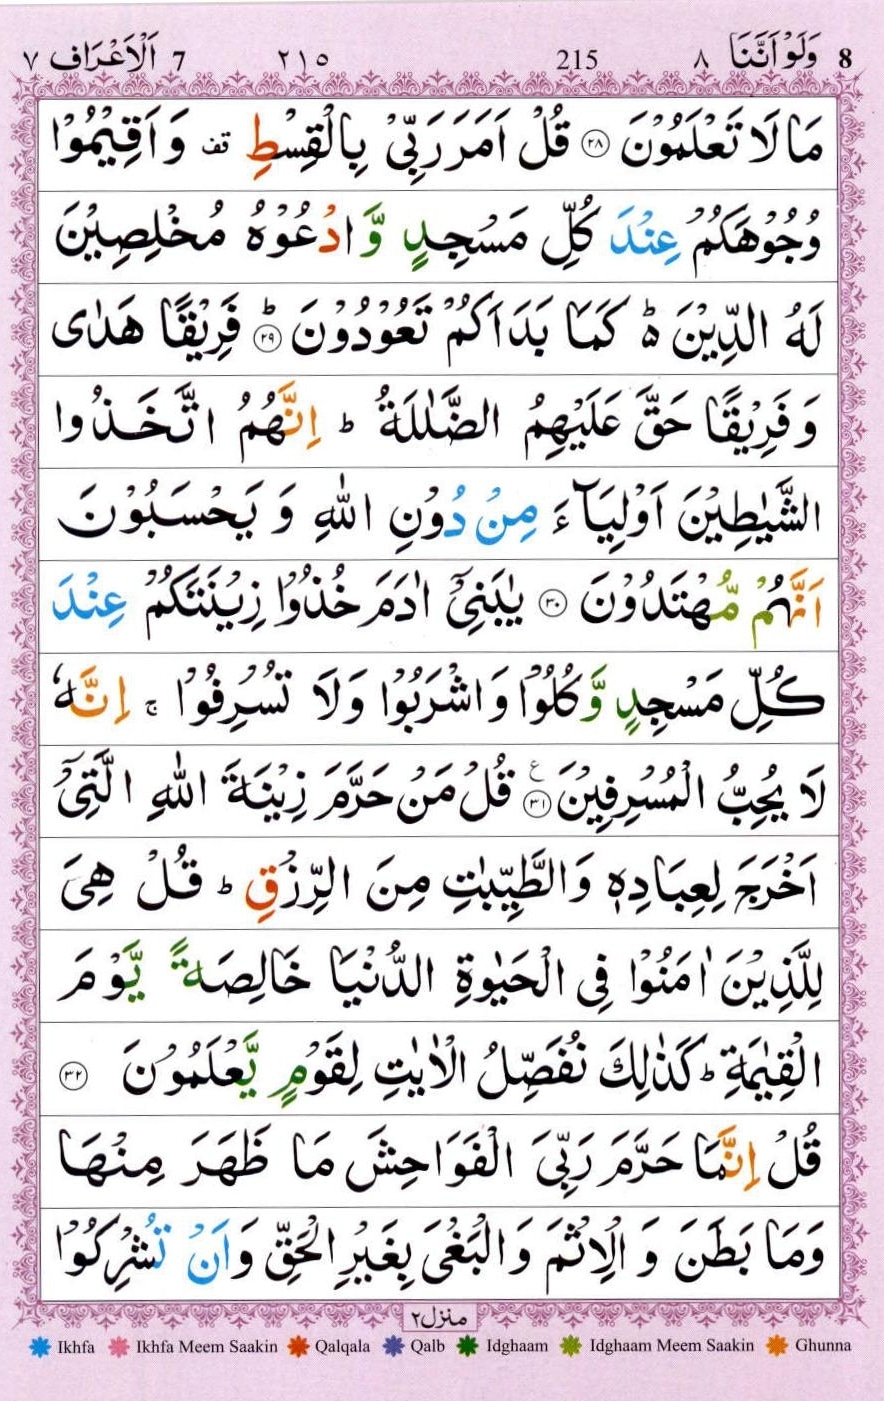 8 وَلَوْ اَنَّنَا ٨ 215 ٢١٥ 7 اَلْاَعْرَاف ٧
مَا لَا تَعْلَمُوْنَ ۝٢٨ قُلْ اَمَرَ رَبِّىْ بِالْقِسْطِ قف وَاَقِيْمُوْا
وُجُوْهَكُمْ عِنْدَ كُلِّ مَسْجِدٍ وَّادْعُوْهُ مُخْلِصِيْنَ
لَهُ الدِّيْنَ ۵ؕ كَمَا بَدَاَكُمْ تَعُوْدُوْنَ ؕ۝٢٩ فَرِيْقًا هَدٰى
وَ فَرِيْقًا حَقَّ عَلَيْهِمُ الضَّلٰلَةُ ؕ اِنَّهُمُ اتَّخَذُوا
الشَّيٰطِيْنَ اَوْلِيَآءَ مِنْ دُوْنِ اللّٰهِ وَ يَحْسَبُوْنَ
اَنَّهُمْ مُّهْتَدُوْنَ ۝٣٠ يٰبَنِىْۤ اٰدَمَ خُذُوْا زِيْنَتَكُمْ عِنْدَ
كُلِّ مَسْجِدٍ وَّكُلُوْا وَاشْرَبُوْا وَلَا تُسْرِفُوْا ۚ اِنَّهٗ
لَا يُحِبُّ الْمُسْرِفِيْنَ ۝٣١ ع قُلْ مَنْ حَرَّمَ زِيْنَةَ اللّٰهِ الَّتِىْۤ
اَخْرَجَ لِعِبَادِهٖ وَالطَّيِّبٰتِ مِنَ الرِّزْقِ ؕ قُلْ هِىَ
لِلَّذِيْنَ اٰمَنُوْا فِى الْحَيٰوةِ الدُّنْيَا خَالِصَةً يَّوْمَ
الْقِيٰمَةِ ؕ كَذٰلِكَ نُفَصِّلُ الْاٰيٰتِ لِقَوْمٍ يَّعْلَمُوْنَ ۝٣٢
قُلْ اِنَّمَا حَرَّمَ رَبِّىَ الْفَوَاحِشَ مَا ظَهَرَ مِنْهَا
وَمَا بَطَنَ وَ الْاِثْمَ وَالْبَغْىَ بِغَيْرِ الْحَقِّ وَاَنْ تُشْرِكُوْا
منزل ٢
Ikhfa Ikhfa Meem Saakin Qalqala Qalb Idghaam Idghaam Meem Saakin Ghunna